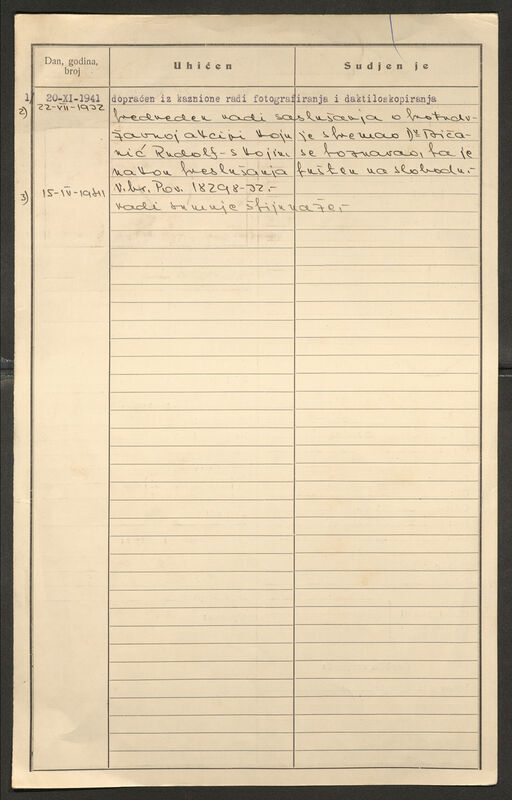 Dan, godina, broj
Uhićen
Sudjenje
1/ 20-XI-1941 dopraćen iz kaznione radi fotografiranja i daktiloskopiranja
2) 22-VII-1932 predveden radi saslušanja o protudr-
žavnoj akciji koju je spremao Dr Biča-
nić Rudolf - s kojim se poznavao, pa je
nakon preslušanja pušten na slobodu.-
V. br. Pov. 18298-32.-
3) 15-IV-1941 radi sumnje špijunaže.-